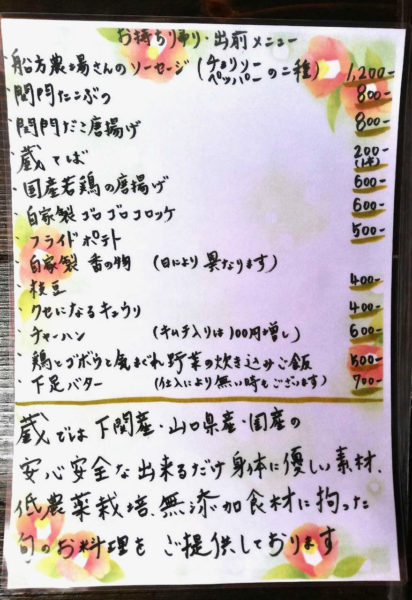 お持ち帰り・出前メニュー
・船方農場さんのソーセージ(チョリソー ペッパーの二種) 1,200-
・関門たこぶつ 800-
・関門だこ唐揚げ 800-
・蔵てば 200-(1本)
・国産若鶏の唐揚げ 600-
・自家製ゴロゴロコロッケ 600-
・フライドポテト 500-
・自家製 香の物 (日により異なります)
・枝豆 400-
・クセになるキュウリ 400-
・チャーハン (キムチ入りは100円増し) 600-
・鶏とゴボウと気まぐれ野菜の炊き込みご飯 500-
・下足バター (仕入により無い時もございます) 700-
蔵では下関産・山口県産・国産の
安心安全な出来るだけ身体に優しい素材、
低農薬栽培、無添加食材に拘った
旬のお料理を ご提供しております